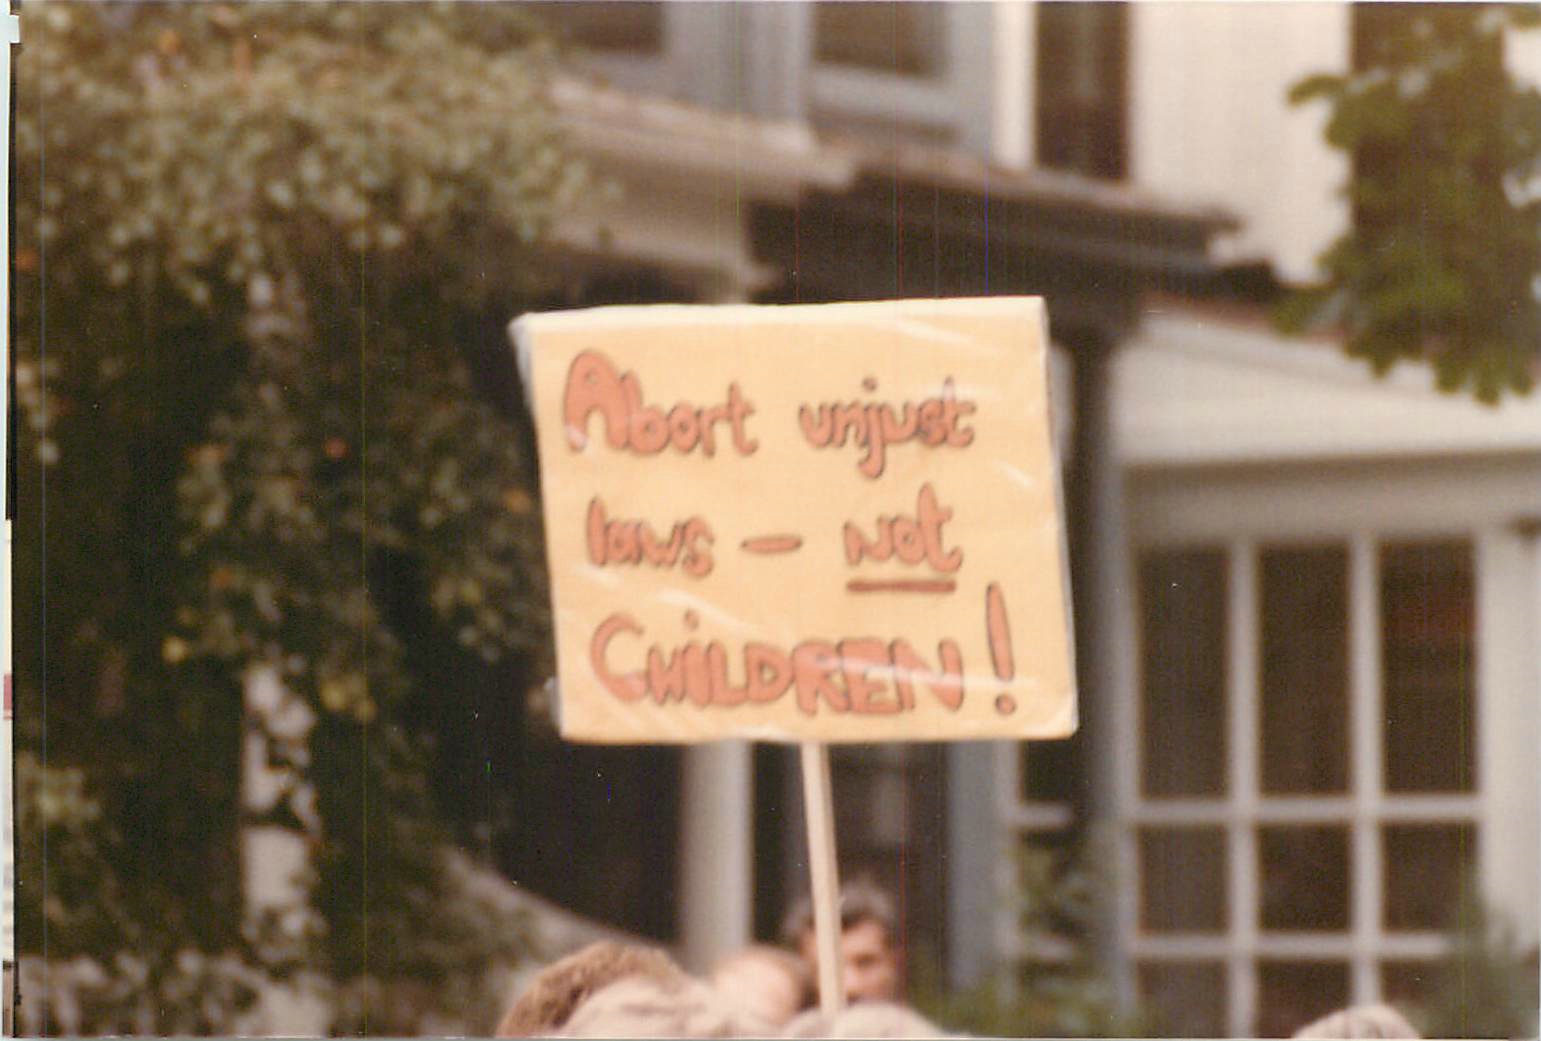 Abort unjust
laws - Not
CHiLDREN!